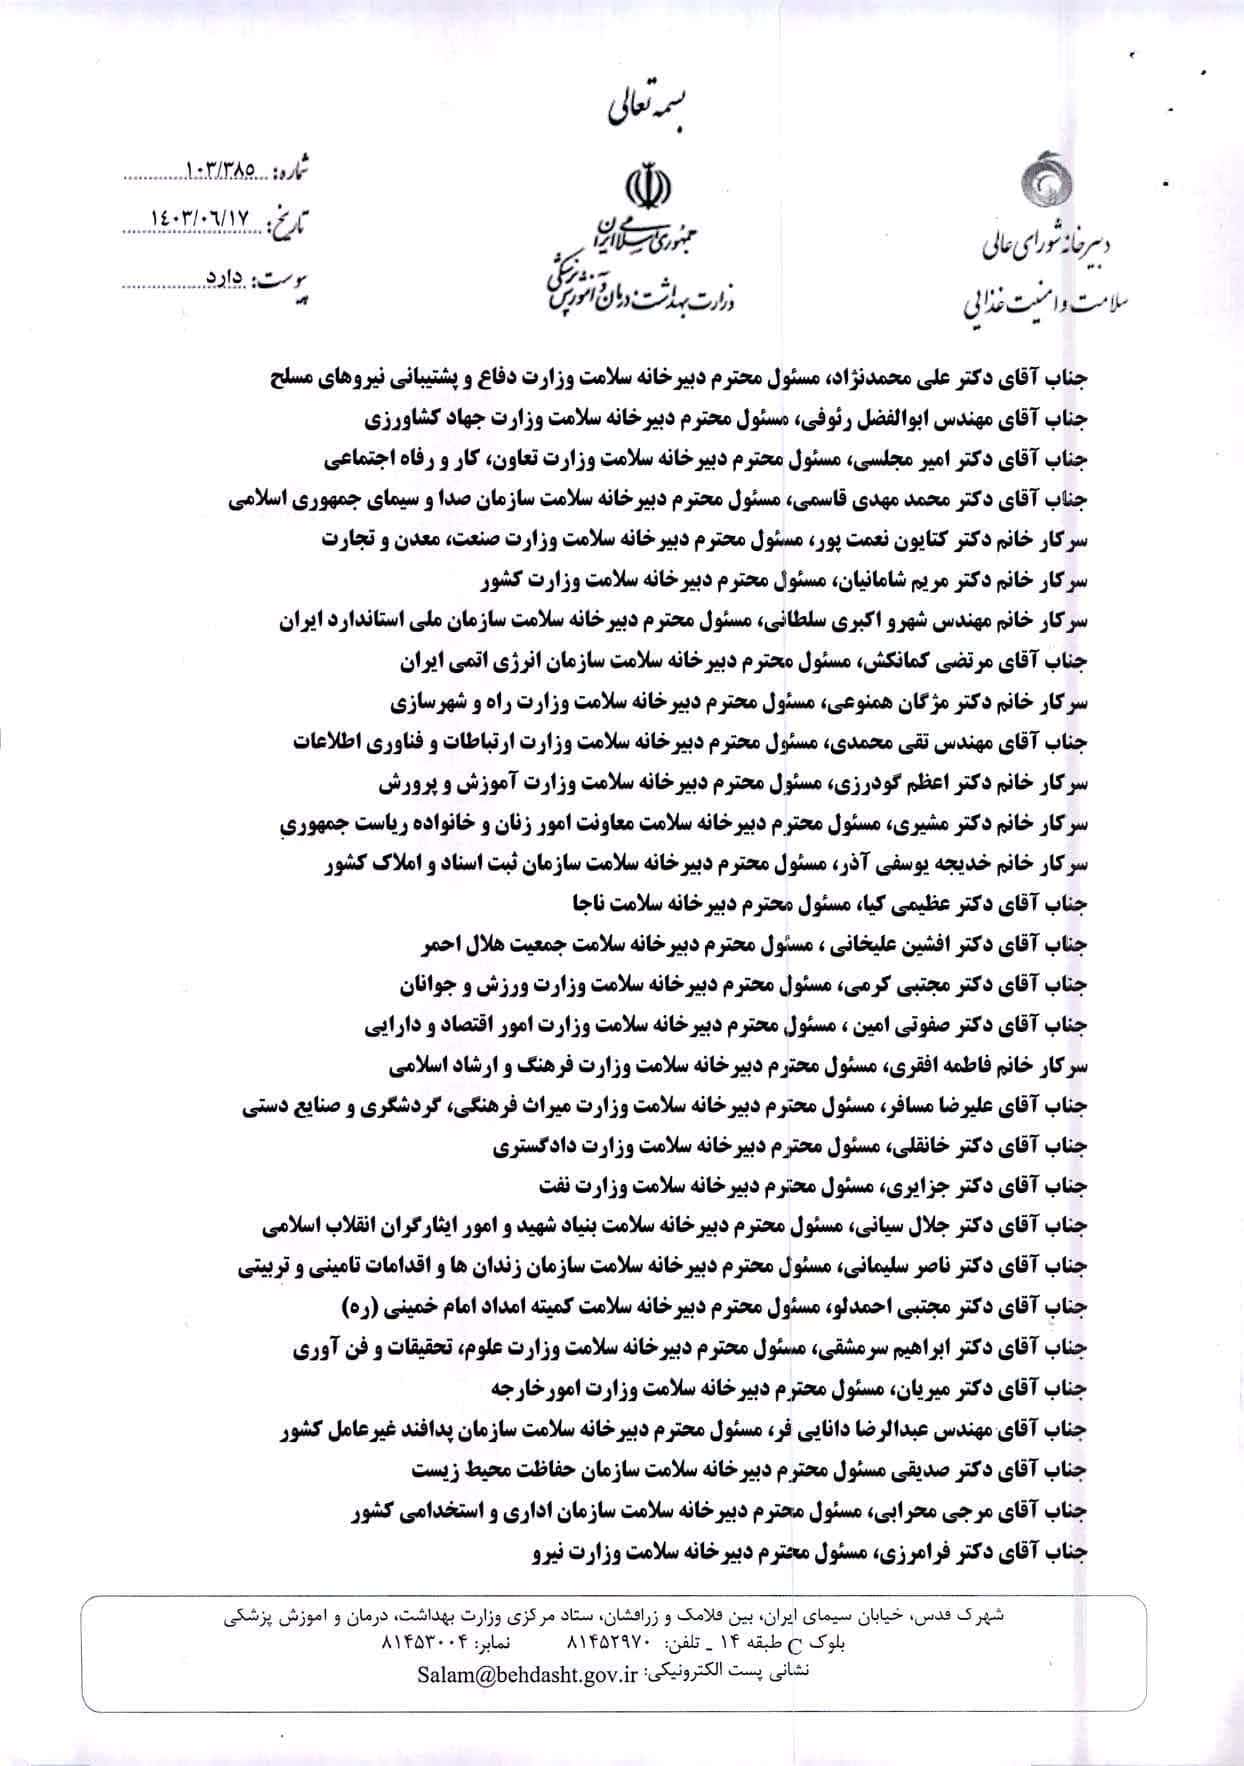 بسمه تعالی
شماره: ۱۰۳/۳۸۵
تاریخ: ۱٤۰۳/۰٦/۱۷
پیوست: دارد
جمهوری اسلامی ایران
وزارت بهداشت، درمان و آموزش پزشکی
دبیرخانه شورای عالی
سلامت و امنیت غذایی
جناب آقای دکتر علی محمدنژاد، مسئول محترم دبیرخانه سلامت وزارت دفاع و پشتیبانی نیروهای مسلح
جناب آقای مهندس ابوالفضل رئوفی، مسئول محترم دبیرخانه سلامت وزارت جهاد کشاورزی
جناب آقای دکتر امیر مجلسی، مسئول محترم دبیرخانه سلامت وزارت تعاون، کار و رفاه اجتماعی
جناب آقای دکتر محمد مهدی قاسمی، مسئول محترم دبیرخانه سلامت سازمان صدا و سیمای جمهوری اسلامی
سرکار خانم دکتر کتایون نعمت پور، مسئول محترم دبیرخانه سلامت وزارت صنعت، معدن و تجارت
سرکار خانم دکتر مریم شامانیان، مسئول محترم دبیرخانه سلامت وزارت کشور
سرکار خانم مهندس شهرو اکبری سلطانی، مسئول محترم دبیرخانه سلامت سازمان ملی استاندارد ایران
جناب آقای مرتضی کمانکش، مسئول محترم دبیرخانه سلامت سازمان انرژی اتمی ایران
سرکار خانم دکتر مژگان همنوعی، مسئول محترم دبیرخانه سلامت وزارت راه و شهرسازی
جناب آقای مهندس تقی محمدی، مسئول محترم دبیرخانه سلامت وزارت ارتباطات و فناوری اطلاعات
سرکار خانم دکتر اعظم گودرزی، مسئول محترم دبیرخانه سلامت وزارت آموزش و پرورش
سرکار خانم دکتر مشیری، مسئول محترم دبیرخانه سلامت معاونت امور زنان و خانواده ریاست جمهوری
سرکار خانم خدیجه یوسفی آذر، مسئول محترم دبیرخانه سلامت سازمان ثبت اسناد و املاک کشور
جناب آقای دکتر عظیمی کیا، مسئول محترم دبیرخانه سلامت ناجا
جناب آقای دکتر افشین علیخانی ، مسئول محترم دبیرخانه سلامت جمعیت هلال احمر
جناب آقای دکتر مجتبی کرمی، مسئول محترم دبیرخانه سلامت وزارت ورزش و جوانان
جناب آقای دکتر صفوتی امین ، مسئول محترم دبیرخانه سلامت وزارت امور اقتصاد و دارایی
سرکار خانم فاطمه افقری، مسئول محترم دبیرخانه سلامت وزارت فرهنگ و ارشاد اسلامی
جناب آقای علیرضا مسافر، مسئول محترم دبیرخانه سلامت وزارت میراث فرهنگی، گردشگری و صنایع دستی
جناب آقای دکتر خانقلی، مسئول محترم دبیرخانه سلامت وزارت دادگستری
جناب آقای دکتر جزایری، مسئول محترم دبیرخانه سلامت وزارت نفت
جناب آقای دکتر جلال سیانی، مسئول محترم دبیرخانه سلامت بنیاد شهید و امور ایثارگران انقلاب اسلامی
جناب آقای دکتر ناصر سلیمانی، مسئول محترم دبیرخانه سلامت سازمان زندان ها و اقدامات تامینی و تربیتی
جناب آقای دکتر مجتبی احمدلو، مسئول محترم دبیرخانه سلامت کمیته امداد امام خمینی (ره)
جناب آقای دکتر ابراهیم سرمشقی، مسئول محترم دبیرخانه سلامت وزارت علوم، تحقیقات و فن آوری
جناب آقای دکتر میریان، مسئول محترم دبیرخانه سلامت وزارت امورخارجه
جناب آقای مهندس عبدالرضا دانایی فر، مسئول محترم دبیرخانه سلامت سازمان پدافند غیرعامل کشور
جناب آقای دکتر صدیقی مسئول محترم دبیرخانه سلامت سازمان حفاظت محیط زیست
جناب آقای مرجی محرابی، مسئول محترم دبیرخانه سلامت سازمان اداری و استخدامی کشور
جناب آقای دکتر فرامرزی، مسئول محترم دبیرخانه سلامت وزارت نیرو
شهرک قدس، خیابان سیمای ایران، بین فلامک و زرافشان، ستاد مرکزی وزارت بهداشت، درمان و اموزش پزشکی
بلوک C طبقه ۱۴ ـ تلفن: ۸۱۴۵۲۹۷۰ نمابر: ۸۱۴۵۳۰۰۴
نشانی پست الکترونیکی: Salam@behdasht.gov.ir